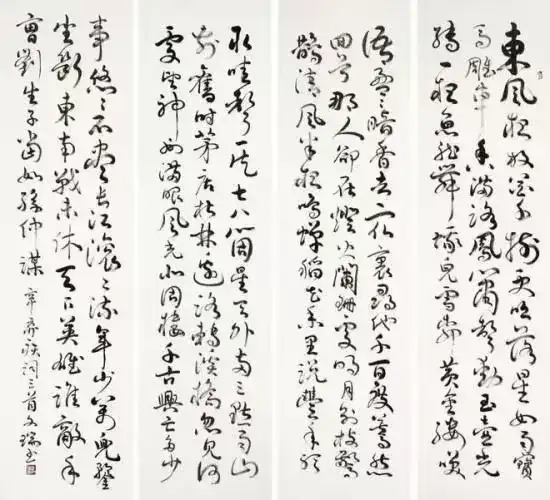 東風夜放花千樹更吹落星如雨寶
馬雕車香滿路鳳簫聲動玉壺光
轉一夜魚龍舞蛾兒雪柳黃金縷笑
語盈〻暗香去衆裏尋他千百度驀然
回首那人卻在燈火闌珊處明月別枝驚
鵲清風半夜鳴蟬稻花香里說豐年聽
取蛙聲一片七八個星天外兩三點雨山
前舊時茅店社林邊路轉溪橋忽見何
處望神州滿眼風光北固樓千古興亡多少
事悠〻不盡長江滾〻流年少萬兜鍪
坐斷東南戰未休天下英雄誰敵手
曹劉生子當如孫仲謀 辛棄疾詞三首文瑞書